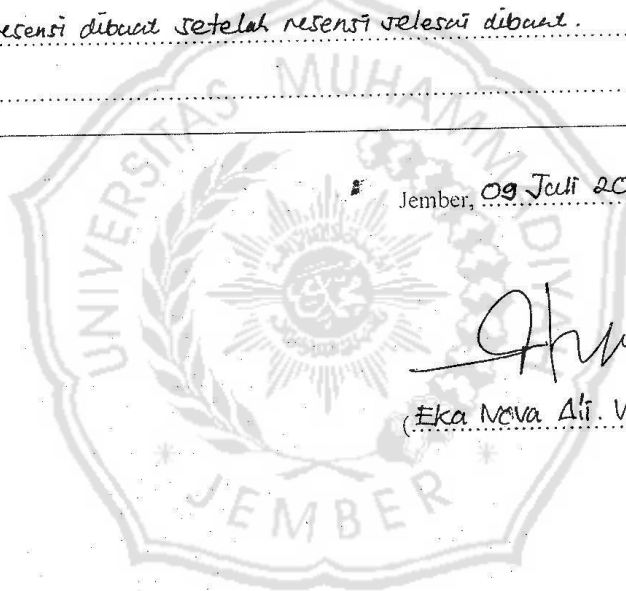 resensi dibuat setelah resensi selesai dibuat.
UNIVERSITAS MUHAMMADIYAH
Jember, 09 Juli 20
(Eka Nova Ali. V
JEMBER